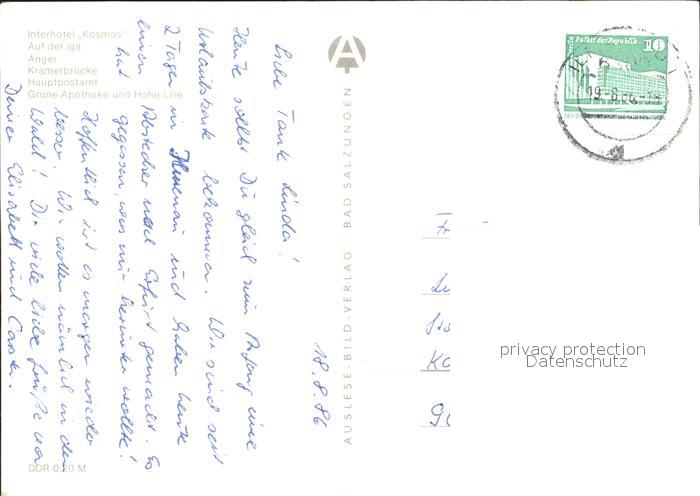 Interhotel „Kosmos"
Auf der iga
Anger
Krämerbrücke
Hauptpostamt
Grüne Apotheke und Hohe Lilie
18.8.86
Liebe Tante Linda!
Heute sollst Du gleich zum Anfang eine
Urlaubskarte bekommen. Wir sind seit
2 Tagen in Ilmenau und haben heute
einen Abstecher nach Erfurt gemacht. Es
hat gegossen, was nur herunter wollte!
Hoffentlich ist es morgen wieder
besser. Wir wollen nämlich in den
Wald! Dir viele liebe Grüße von
Deiner Elisabeth und
DDR 0,20 M
AUSLESE-BILD-VERLAG · BAD SALZUNGEN
Berlin Palast der Republik
10
19.-8.86
privacy protection
Datenschutz